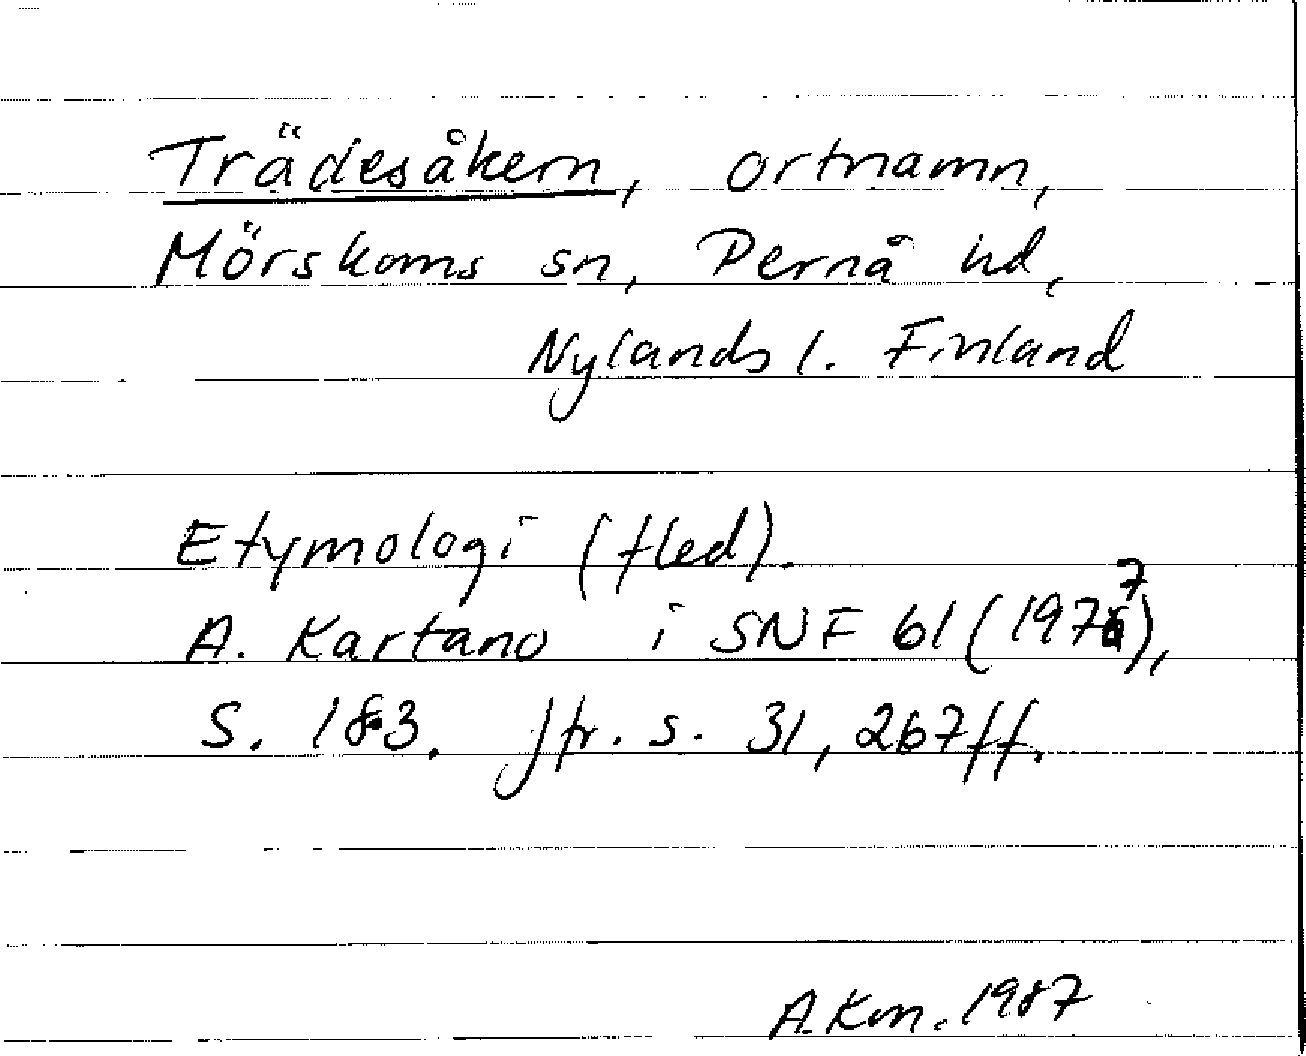 Trädesåkern, ortnamn,
Mörskoms sn, Pernå hd,
Nylands l. Finland
Etymologi (fled).
A. Kartano i SNF 61 (1977),
S. 183. Jfr. s. 31, 267ff.
A.Km. 1987